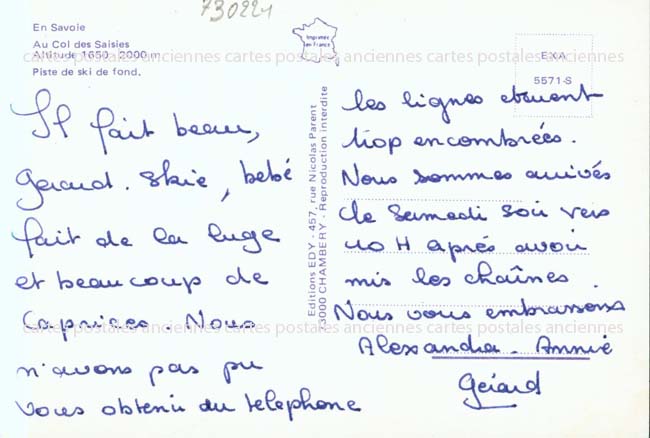 730221
En Savoie
Au Col des Saisies
Altitude 1650 - 2000 m
Piste de ski de fond.
Imprimée en France
EXA
5571-S
cartes postales anciennes cartes postales anciennes cartes postales anciennes
Il fait beau,
Gérard. Skie, bébé
fait de la luge
et beaucoup de
Caprices. Nous
n'avons pas pu
vous obtenir au telephone
Editions EDY - 457, rue Nicolas Parent
73000 CHAMBERY - Reproduction interdite
les lignes etaient
trop encombrées.
Nous sommes arrivés
le Samedi soir vers
10 H aprés avoir
mis les chaînes.
Nous vous embrassons
Alexandra - Annie
Gérard
cartes postales anciennes cartes postales anciennes cartes postales anciennes